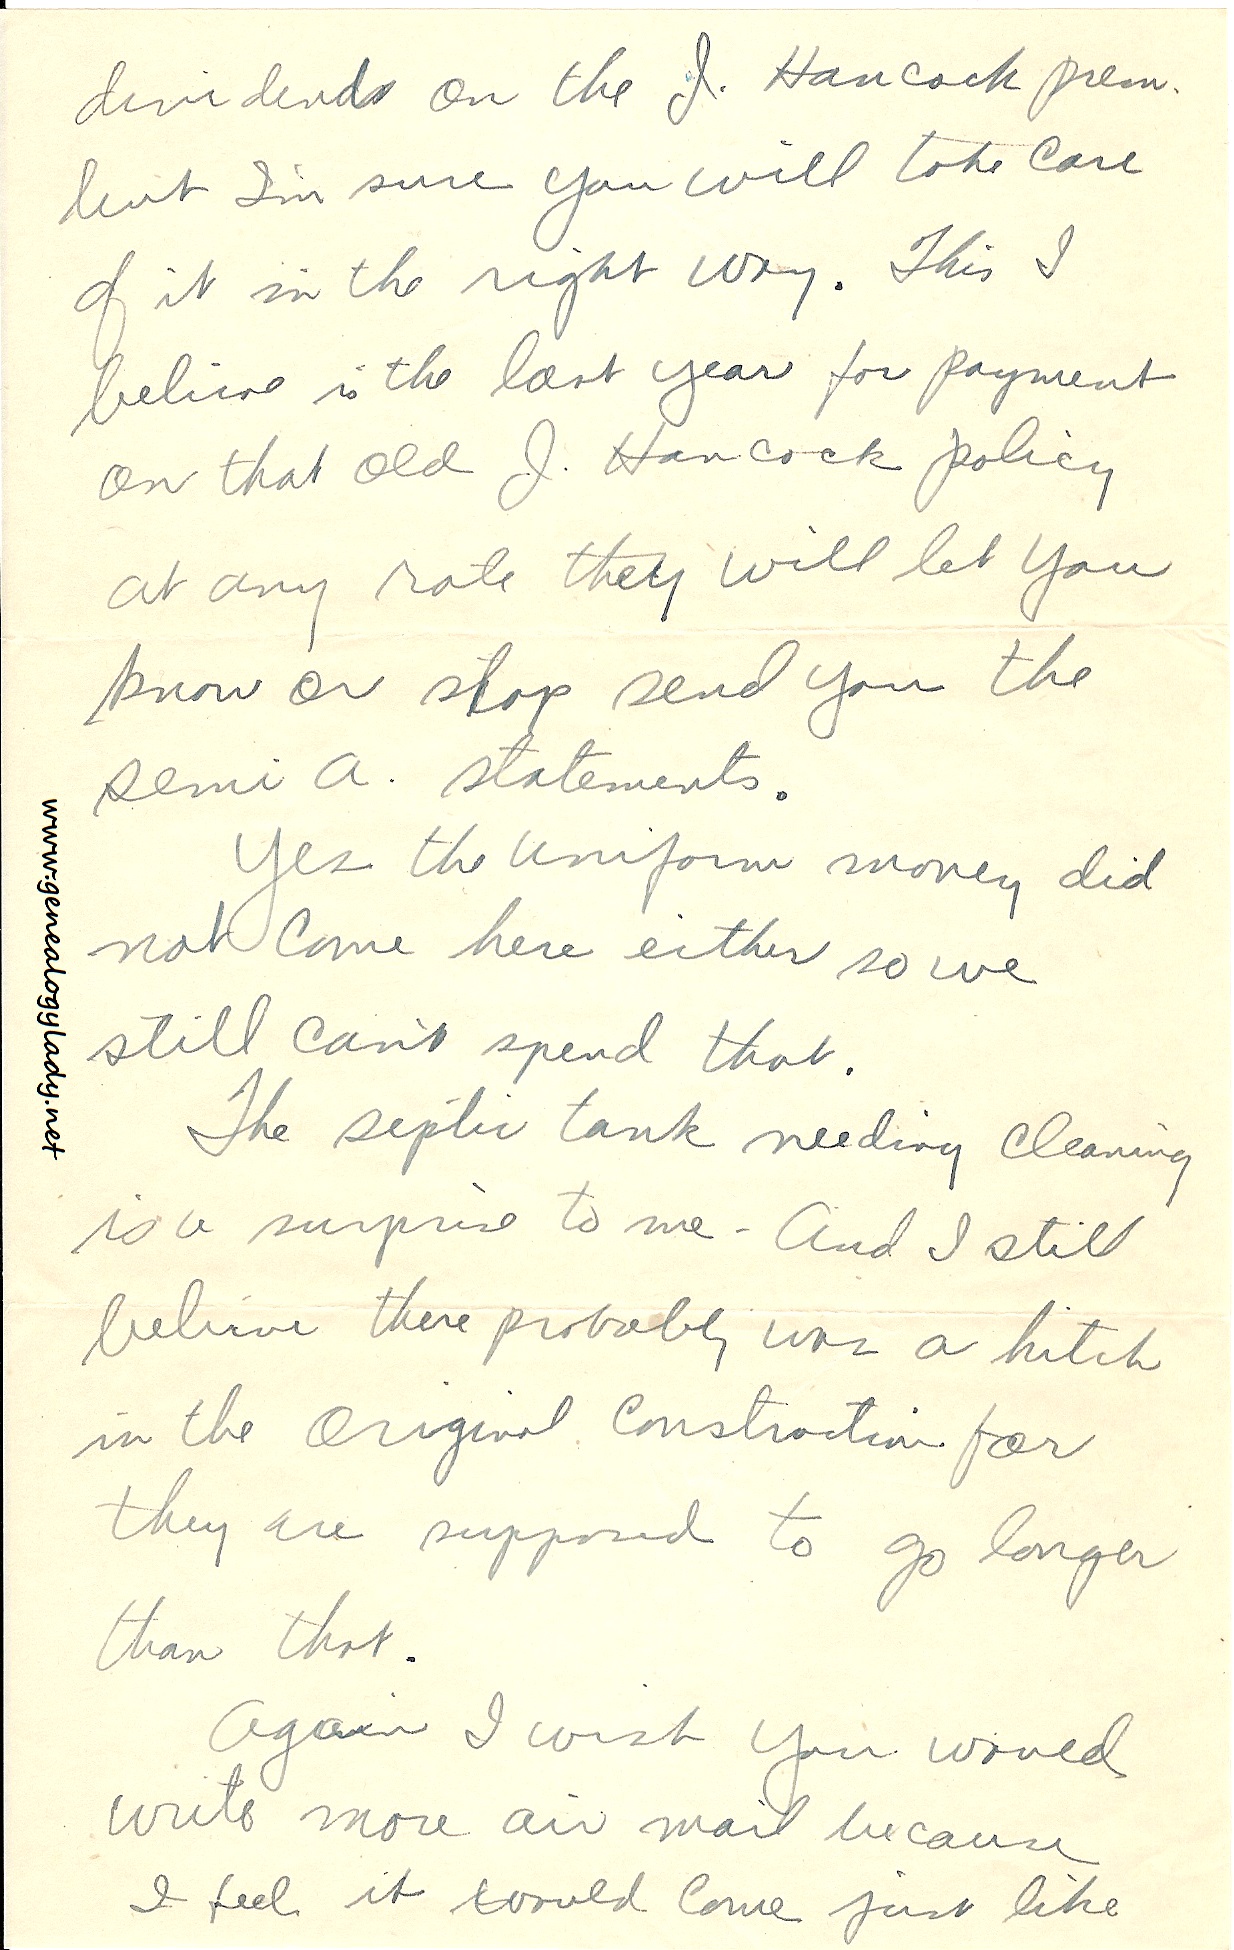 dividends on the J. Hancock prem.
but I'm sure you will take care
of it in the right way. This I
believe is the last year for payment
on that old J. Hancock policy
at any rate they will let you
know or stop send you the
semi a. statements.
Yes the uniform money did
not come here either so we
still can't spend that.
The septic tank needing cleaning
is a surprise to me - And I still
believe there probably was a hitch
in the original construction for
they are supposed to go longer
than that.
Again I wish you would
write more air mail because
I feel it would come just like
www.genealogylady.net